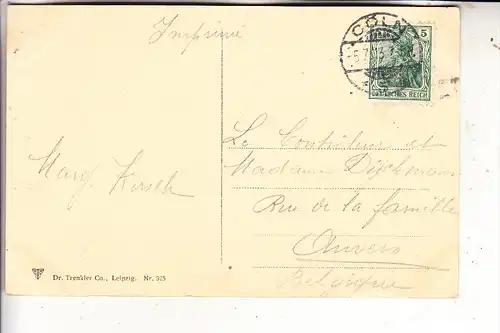 Imprimé
CÖLN
5.7.13.
5
DEUTSCHES REICH
Marg. Kirsch
Le Contrôleur et
Madame Dyckmans
Rue de la famille
Anvers
Belgique
Dr. Trenkler Co., Leipzig. Nr. 525